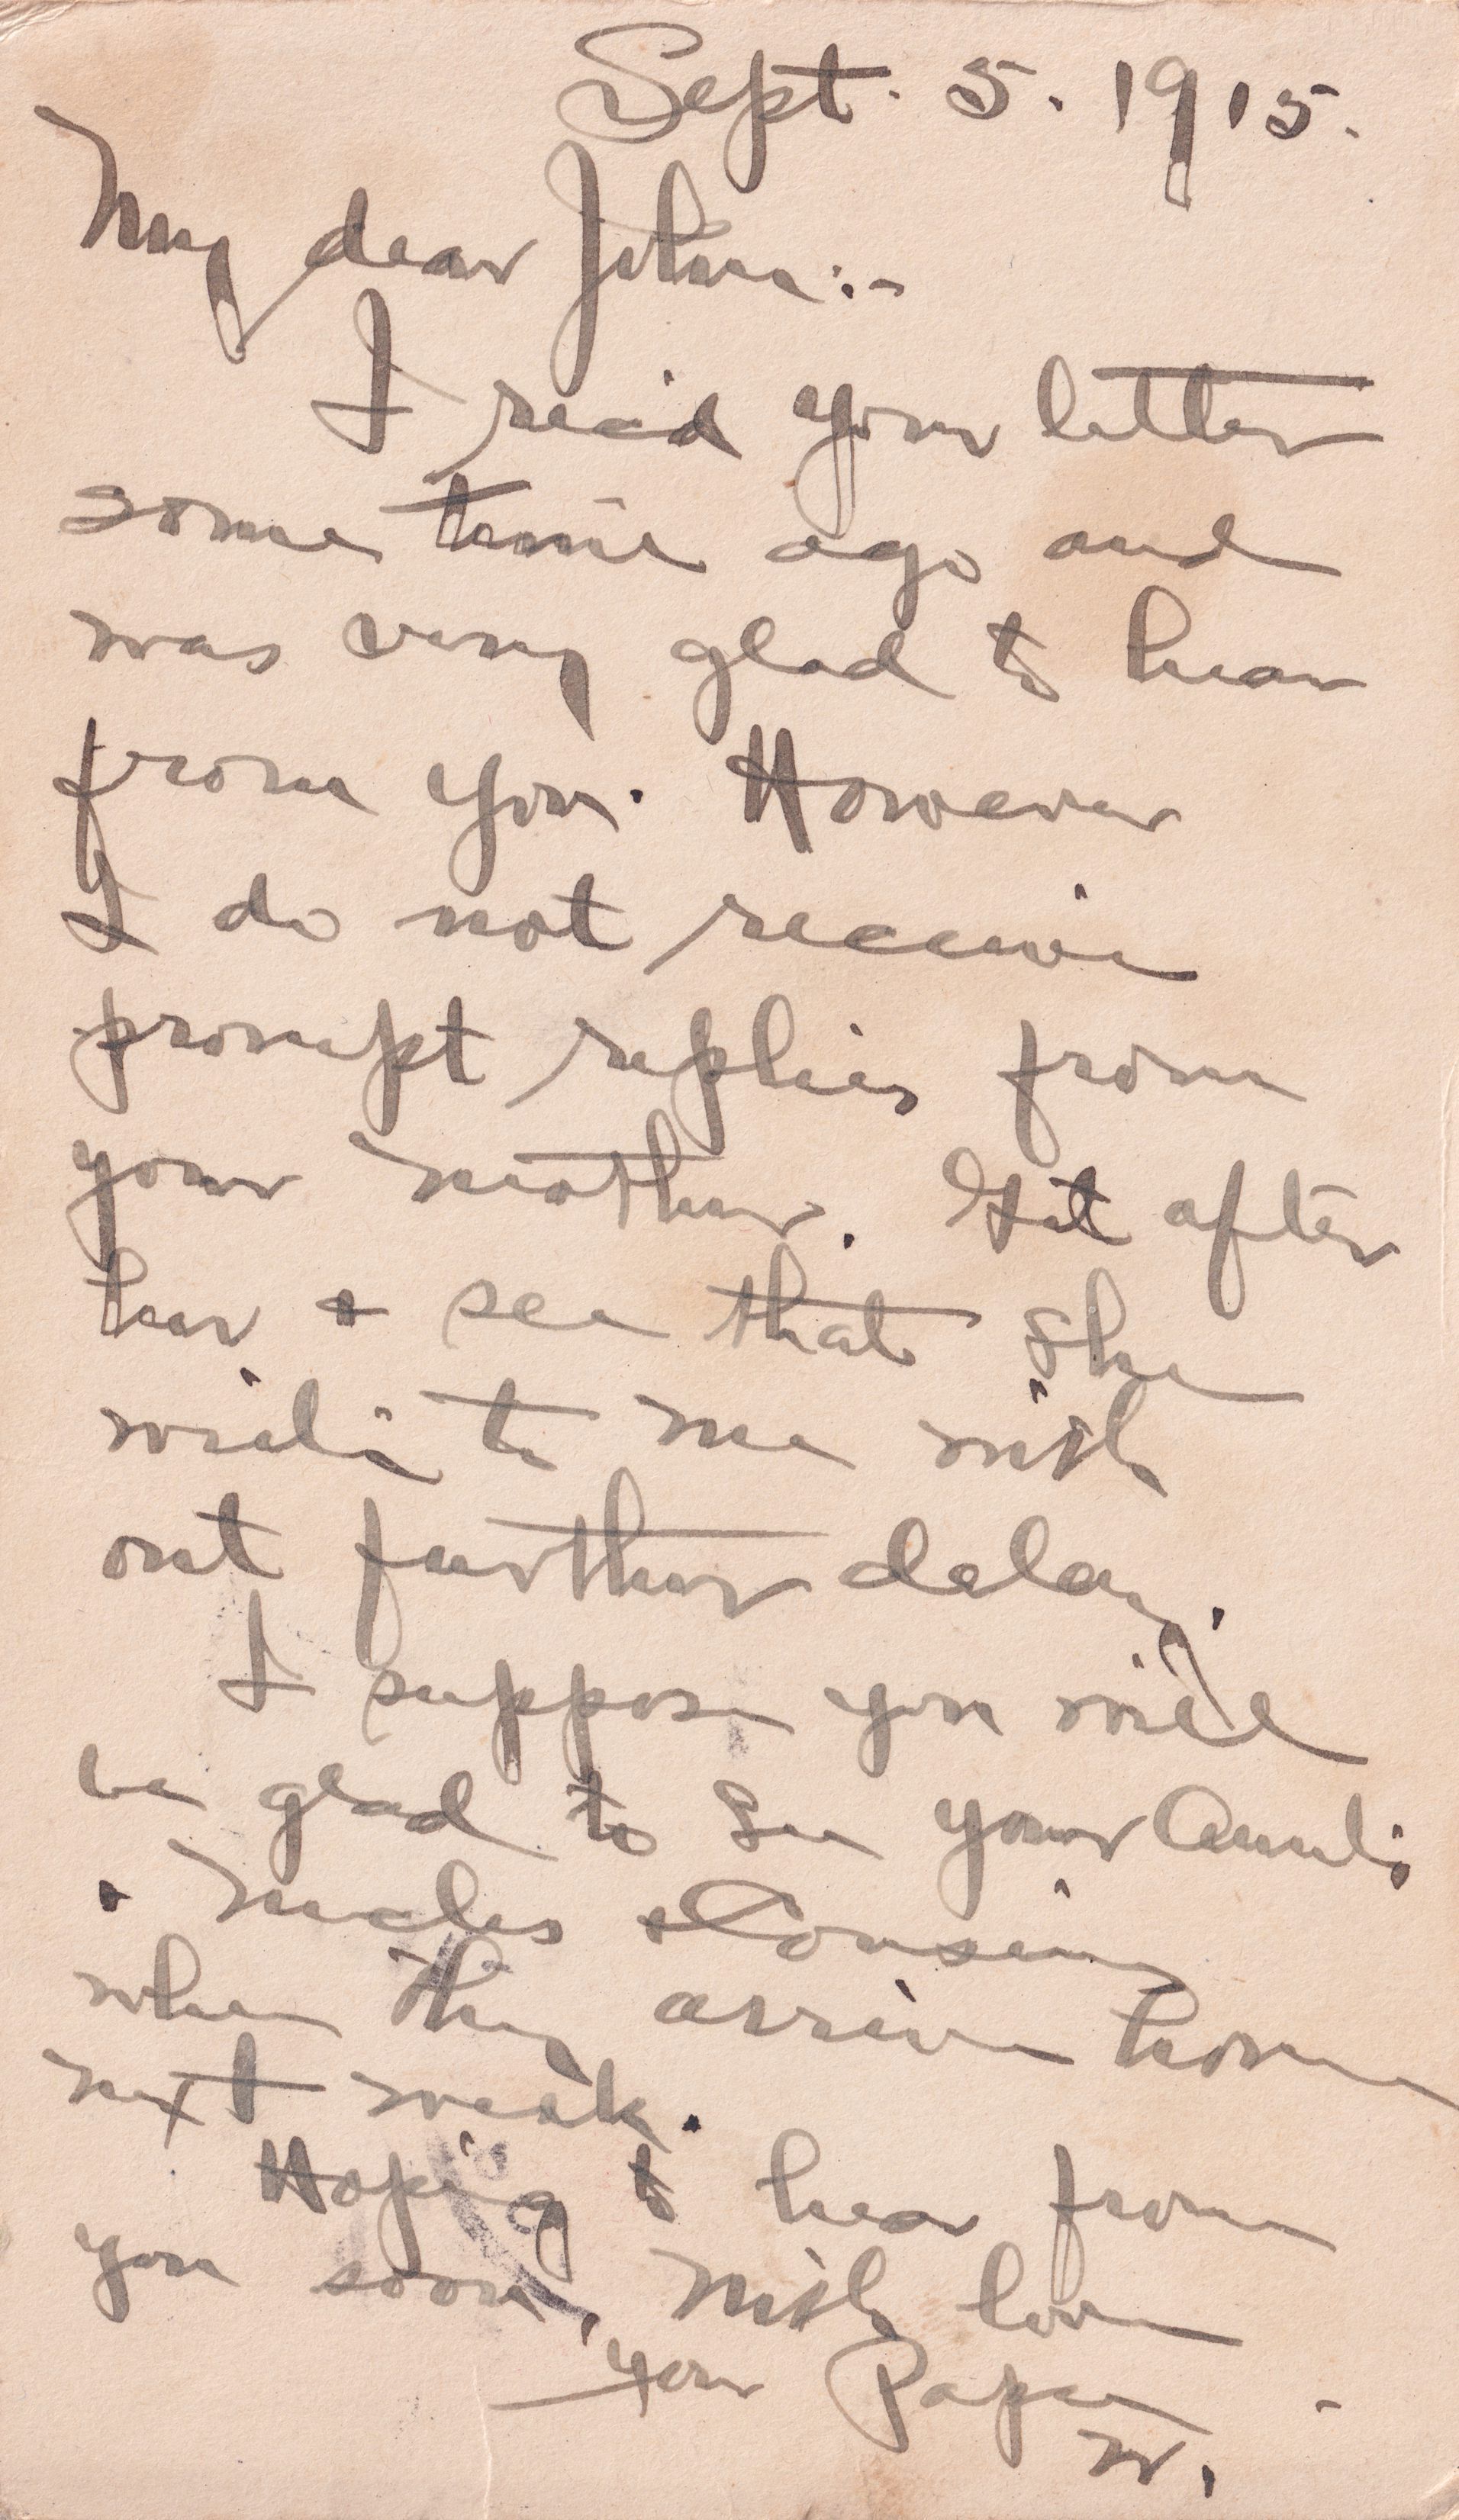 Sept. 5. 1915.
My dear John:-
I rec'd your letter
some time ago and
was very glad to hear
from you. However
I do not receive
prompt replies from
your mother. Get after
her + see that she
writes to me with
out further delay.
I suppose you will
be glad to see your Aunts
+ Uncles + Cousins
when they arrive home
next week.
Hoping to hear from
you soon, With love
your Papa
W.